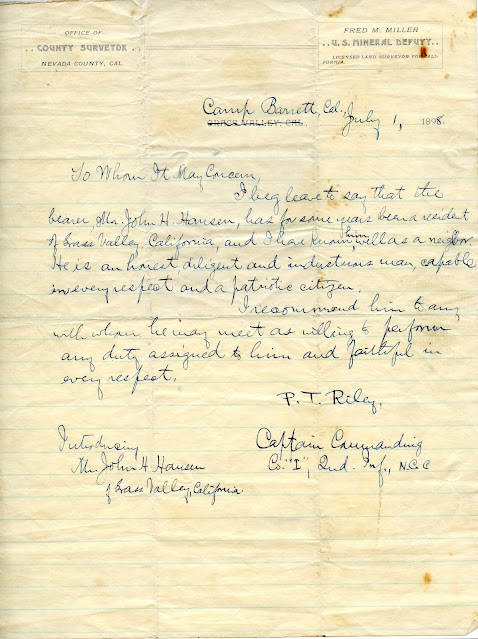 OFFICE OF
COUNTY SURVEYOR
NEVADA COUNTY, CAL.
FRED M. MILLER
U. S. MINERAL DEPUTY
LICENSED LAND SURVEYOR FOR CALI-
FORNIA.
Camp Barrett, Cal.,
GRASS VALLEY, CAL.
July 1, 1898.
To Whom It May Concern,
I beg leave to say that the
bearer, Mr. John H. Hansen, has for some years been a resident
of Grass Valley, California, and I have known him well as a neighbor.
He is an honest, diligent and industrious man, capable
in every respect and a patriotic citizen.
I recommend him to any
with whom he may meet as willing to perform
any duty assigned to him and faithful in
every respect.
P. T. Riley,
Captain Commanding
Co. "I", 2nd. Inf., N.G.C
Introducing
Mr. John H Hansen
of Grass Valley, California